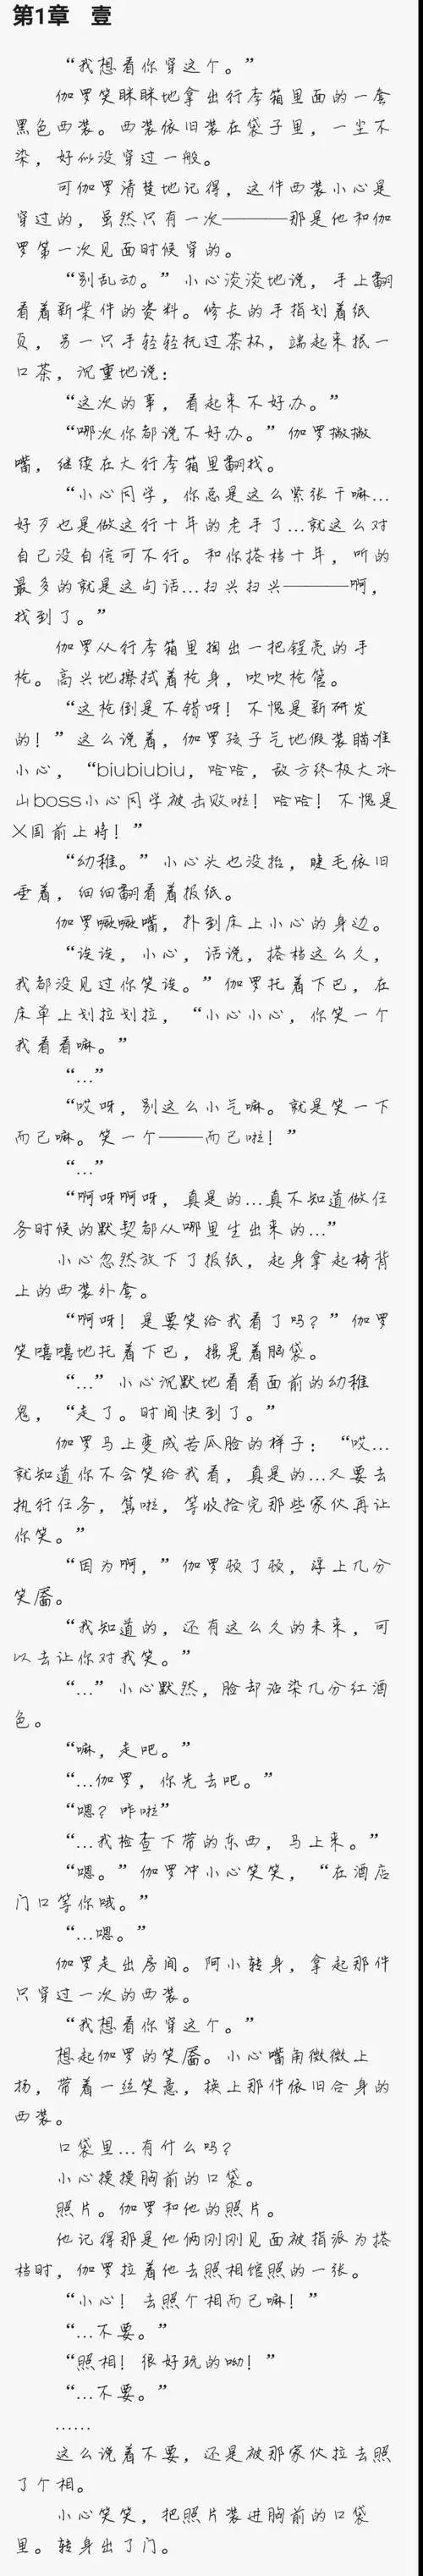 第1章 壹
“我想看你穿这个。”
伽罗笑眯眯地拿出行李箱里面的一套
黑色西装。西装依旧装在袋子里，一尘不
染，好似没穿过一般。
可伽罗清楚地记得，这件西装小心是
穿过的，虽然只有一次————那是他和伽
罗第一次见面时候穿的。
“别乱动。”小心淡淡地说，手上翻
看着新案件的资料。修长的手指划着纸
页，另一只手轻轻抚过茶杯，端起来抿一
口茶，沉重地说：
“这次的事，看起来不好办。”
“哪次你都说不好办。”伽罗撇撇
嘴，继续在大行李箱里翻找。
“小心同学，你总是这么紧张干嘛…
好歹也是做这行十年的老手了…就这么对
自己没自信可不行。和你搭档十年，听的
最多的就是这句话…扫兴扫兴————啊，
找到了。”
伽罗从行李箱里掏出一把锃亮的手
枪。高兴地擦拭着枪身，吹吹枪管。
“这枪倒是不错呀！不愧是新研发
的！”这么说着，伽罗孩子气地假装瞄准
小心，“biubiubiu，哈哈，敌方终极大冰
山boss小心同学被击败啦！哈哈！不愧是
X国前上将！”
“幼稚。”小心头也没抬，睫毛依旧
垂着，细细翻看着报纸。
伽罗噘噘嘴，扑到床上小心的身边。
“诶诶，小心，话说，搭档这么久，
我都没见过你笑诶。”伽罗托着下巴，在
床单上划拉划拉，“小心小心，你笑一个
我看看嘛。”
“…”
“哎呀，别这么小气嘛。就是笑一下
而已嘛。笑一个———而已啦！”
“…”
“啊呀啊呀，真是的…真不知道做任
务时候的默契都从哪里生出来的…”
小心忽然放下了报纸，起身拿起椅背
上的西装外套。
“啊呀！是要笑给我看了吗？”伽罗
笑嘻嘻地托着下巴，摇晃着脑袋。
“…”小心沉默地看看面前的幼稚
鬼，“走了。时间快到了。”
伽罗马上变成苦瓜脸的样子：“哎…
就知道你不会笑给我看，真是的…又要去
执行任务，算啦，等收拾完那些家伙再让
你笑。”
“因为啊，”伽罗顿了顿，浮上几分
笑靥。
“我知道的，还有这么久的未来，可
以去让你对我笑。”
“…”小心默然，脸却沾染几分红酒
色。
“嘛，走吧。”
“…伽罗，你先去吧。”
“嗯？咋啦”
“…我检查下带的东西，马上来。”
“嗯。”伽罗冲小心笑笑，“在酒店
门口等你哦。”
“…嗯。”
伽罗走出房间。阿小转身，拿起那件
只穿过一次的西装。
“我想看你穿这个。”
想起伽罗的笑靥。小心嘴角微微上
扬，带着一丝笑意，换上那件依旧合身的
西装。
口袋里…有什么吗？
小心摸摸胸前的口袋。
照片。伽罗和他的照片。
他记得那是他俩刚刚见面被指派为搭
档时，伽罗拉着他去照相馆照的一张。
“小心！去照个相而已嘛！”
“…不要。”
“照相！很好玩的呦！”
“…不要。”
……
这么说着不要，还是被那家伙拉去照
了个相。
小心笑笑，把照片装进胸前的口袋
里。转身出了门。